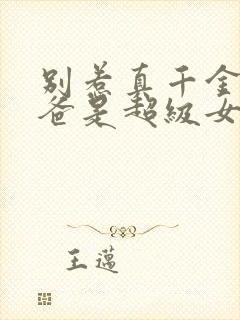 别惹真千金
爸是超级女
王邁